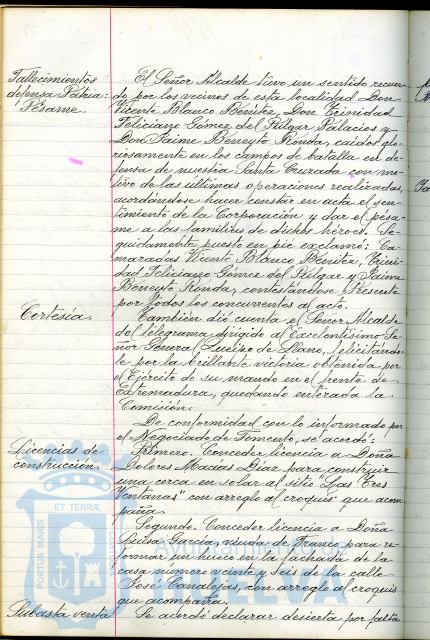 Fallecimientos
defensa Patria:
Pésame.
El Señor Alcalde tuvo un sentido recuer-
do por los vecinos de esta localidad Don
Vicente Blanco Benítez, Don Trinidad
Feliciano Gómez del Pulgar Palacios y
Don Jaime Beneyto Ronda, caídos glo-
riosamente en los campos de batalla en de-
fensa de nuestra Santa Cruzada con mo-
tivo de las últimas operaciones realizadas,
acordándose hacer constar en acta el sen-
timiento de la Corporación y dar el pésa-
me a las familias de dichos héroes. Se-
guidamente puesto en pie exclamó: Ca-
maradas Vicente Blanco Benítez, Trini-
dad Feliciano Gómez del Pulgar y Jaime
Beneyto Ronda, contestándose Presente
por todos los concurrentes al acto.
Cortesía.
También dió cuenta el Señor Alcalde
del telegrama dirigido al Excelentísimo Se-
ñor General Queipo de Llano, felicitándo-
le por la brillante victoria obtenida por
el Ejército de su mando en el frente de
Extremadura, quedando enterada la
Comisión.
De conformidad con lo informado por
el Negociado de Fomento, se acordó:
Licencias de
construcción.
Primero. Conceder licencia a Doña
Dolores Macías Díaz para construir
una cerca en solar al sitio "Las Tres
Ventanas" con arreglo al croquis que acom-
paña.
Segundo. Conceder licencia a Doña
Luisa García, viuda de Franco, para re-
formar un hueco en la fachada de la
casa número veinte y seis de la calle
José Canalejas, con arreglo al croquis
que acompaña.
Subasta venta
Se acordó declarar desierta por falta
PORTUS MARIS ET TERRAE